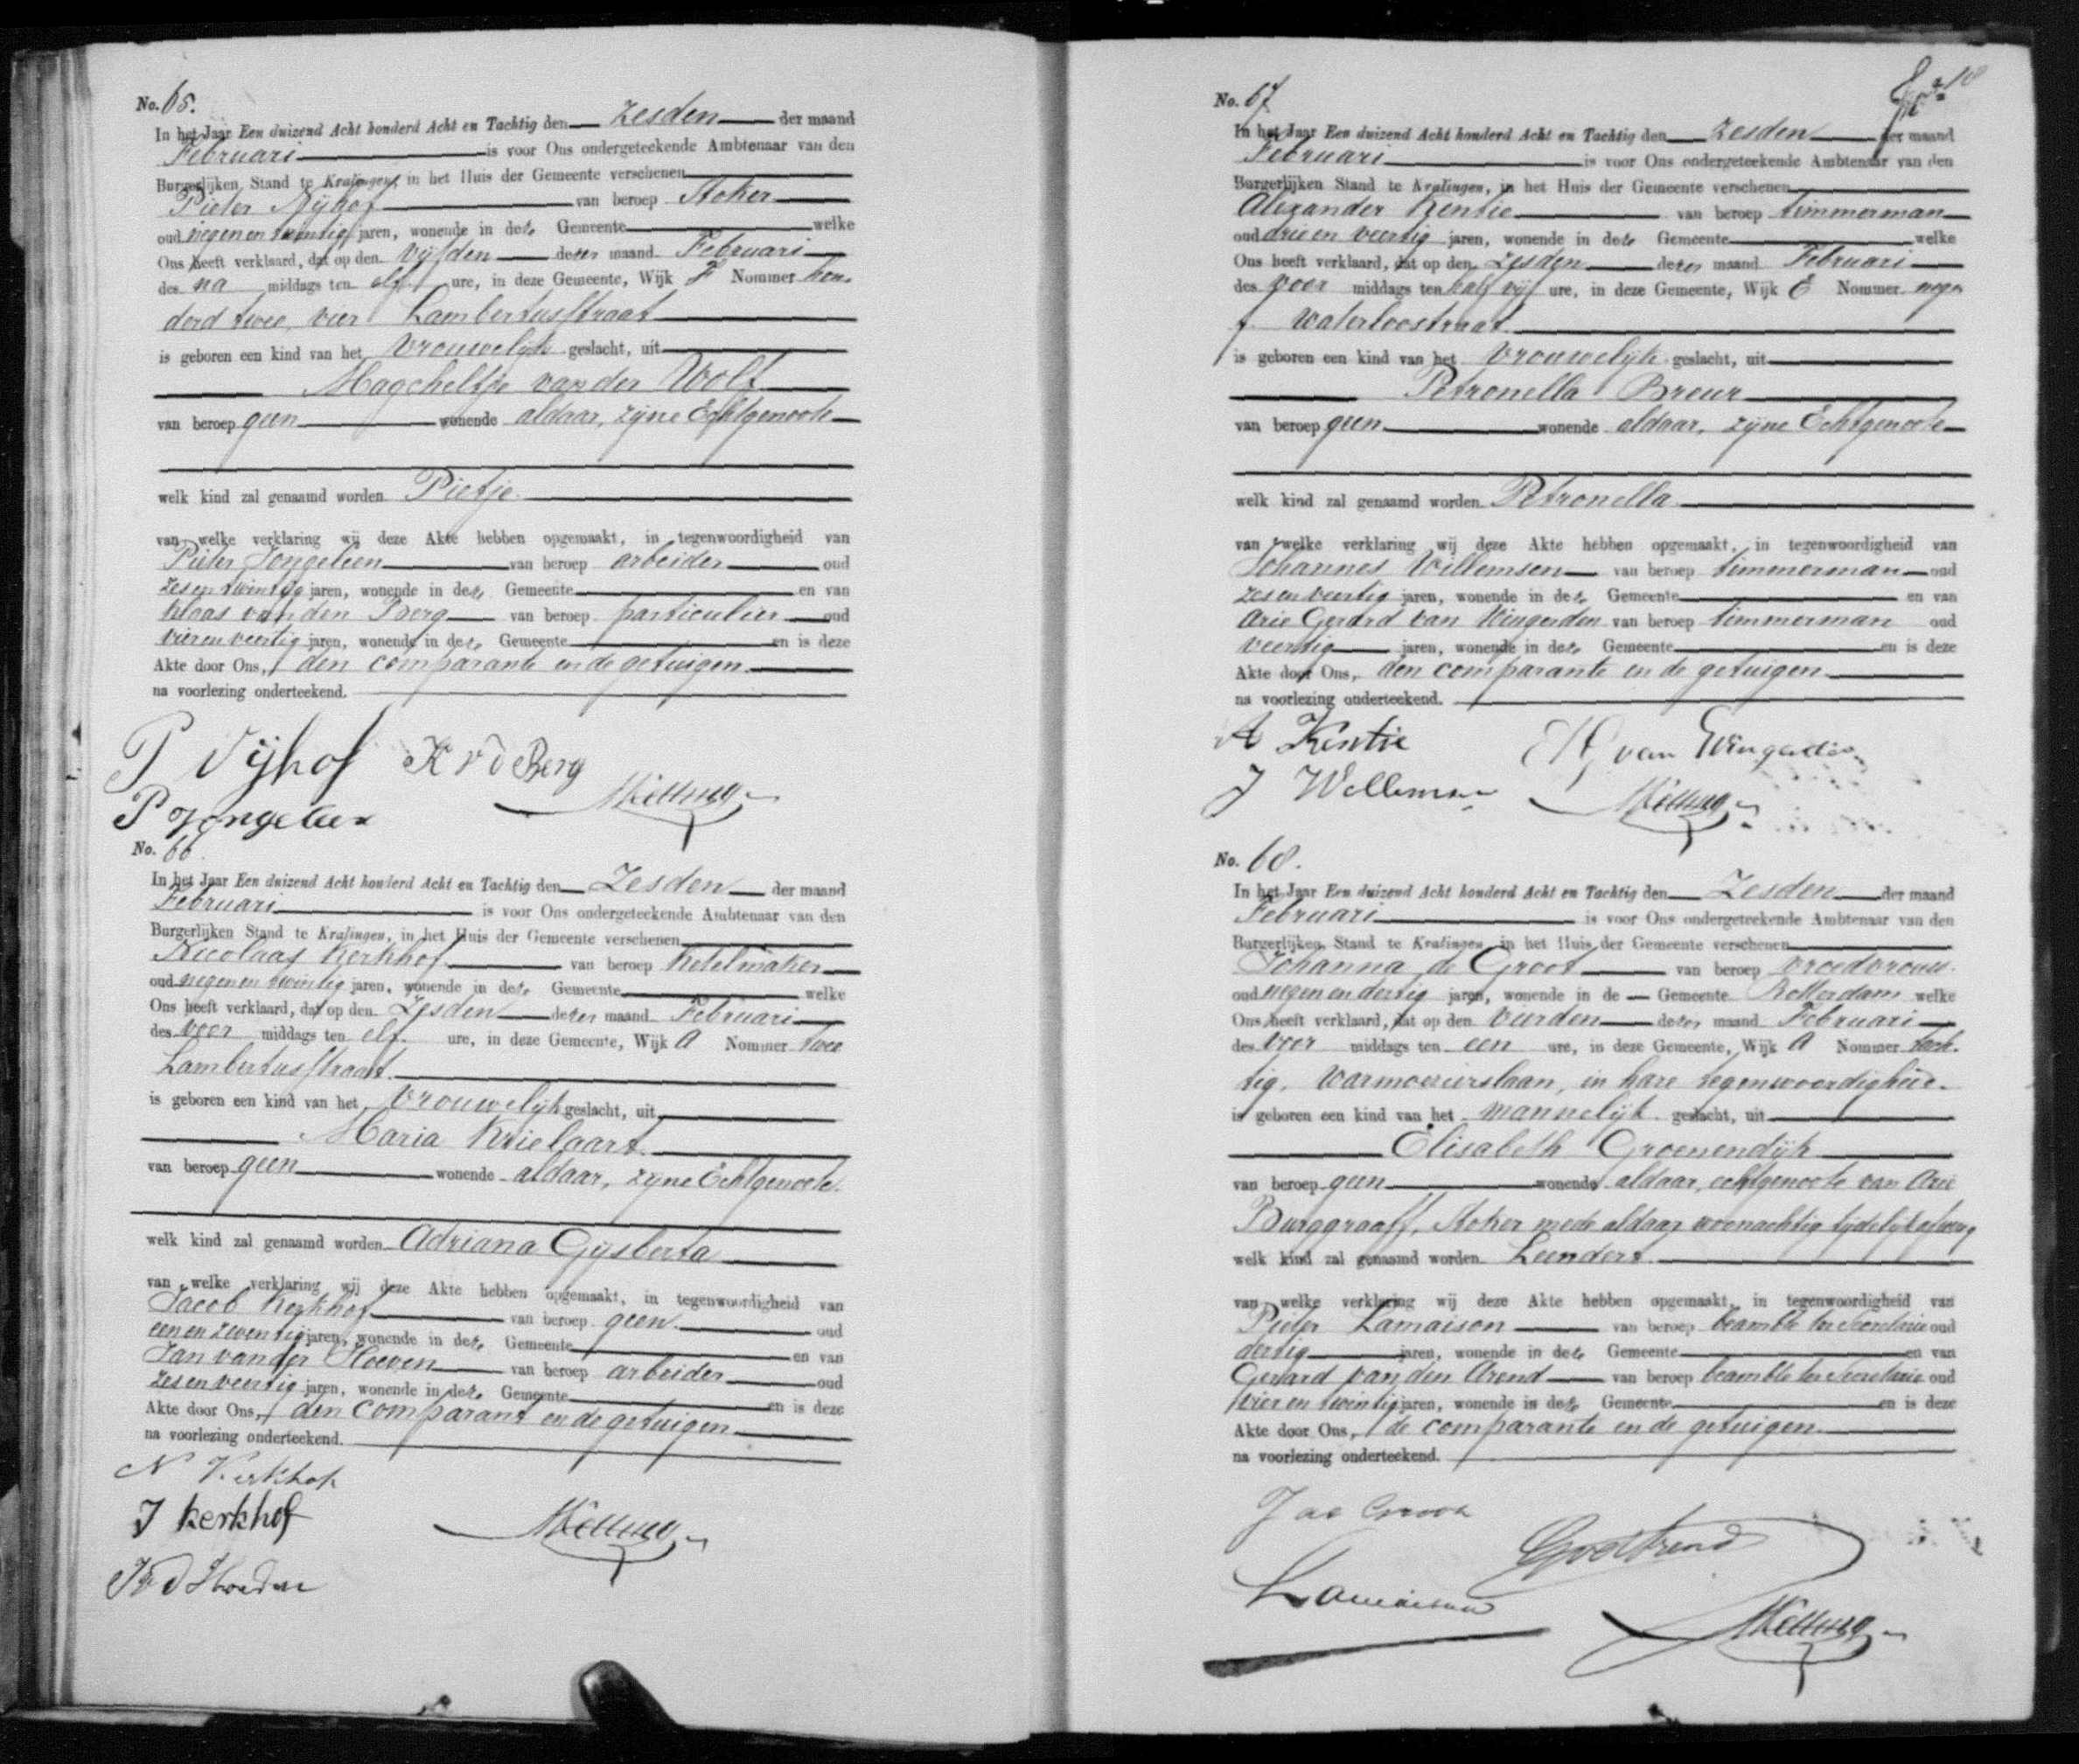 No. 65.
In het Jaar Een duizend Acht honderd Acht en Tachtig den zesden der maand
Februari is voor Ons ondergeteekende Ambtenaar van den
Burgerlijken Stand te Kralingen, in het Huis der Gemeente verschenen
Pieter Nijhof van beroep Stoker
oud negen en twintig jaren, wonende in deze Gemeente welke
Ons heeft verklaard, dat op den vijfden dezer maand Februari
des na middags ten elf ure, in deze Gemeente, Wijk Nommer hon-
derd twee, vier Lambertusstraat
is geboren een kind van het Vrouwelijk geslacht, uit
Magcheltje van der Wolf
van beroep geen wonende aldaar, zijne Echtgenoote
welk kind zal genaamd worden Pietje
van welke verklaring wij deze Akte hebben opgemaakt, in tegenwoordigheid van
Pieter Jongeleen van beroep arbeider oud
zes en twintig jaren, wonende in deze Gemeente en van
Klaas van den Berg van beroep particulier oud
vier en veertig jaren, wonende in deze Gemeente en is deze
Akte door Ons, den comparante en de getuigen
na voorlezing onderteekend.
P Nijhof K v d Berg
P Jongeleen
No. 66.
In het Jaar Een duizend Acht honderd Acht en Tachtig den Zesden der maand
Februari is voor Ons ondergeteekende Ambtenaar van den
Burgerlijken Stand te Kralingen, in het Huis der Gemeente verschenen
Nicolaas Kerkhof van beroep Ketelmaker
oud negen en twintig jaren, wonende in deze Gemeente welke
Ons heeft verklaard, dat op den Zesden dezer maand Februari
des voor middags ten elf ure, in deze Gemeente, Wijk A Nommer twee
Lambertusstraat
is geboren een kind van het Vrouwelijk geslacht, uit
Maria Krielaart
van beroep geen wonende aldaar, zijne Echtgenoote.
welk kind zal genaamd worden Adriana Gijsberta
van welke verklaring wij deze Akte hebben opgemaakt, in tegenwoordigheid van
Jacob Kerkhof van beroep geen oud
een en zeventig jaren, wonende in deze Gemeente en van
Jan van der Hoeven van beroep arbeider oud
zes en veertig jaren, wonende in deze Gemeente en is deze
Akte door Ons, den comparant en de getuigen
na voorlezing onderteekend.
N Kerkhof
J Kerkhof
J v d Hoeven
No. 67
In het Jaar Een duizend Acht honderd Acht en Tachtig den Zesden der maand
Februari is voor Ons ondergeteekende Ambtenaar van den
Burgerlijken Stand te Kralingen, in het Huis der Gemeente verschenen
Alexander Kentie van beroep timmerman
oud drie en veertig jaren, wonende in deze Gemeente welke
Ons heeft verklaard, dat op den zesden dezer maand Februari
des voor middags ten half vijf ure, in deze Gemeente, Wijk E Nommer
Waterloostraat
is geboren een kind van het Vrouwelijk geslacht, uit
Petronella Breur
van beroep geen wonende aldaar, zijne Echtgenoote
welk kind zal genaamd worden Petronella
van welke verklaring wij deze Akte hebben opgemaakt, in tegenwoordigheid van
Johannes Willemsen van beroep timmerman oud
zes en veertig jaren, wonende in deze Gemeente en van
Arie Gerard van Wingerden van beroep timmerman oud
veertig jaren, wonende in deze Gemeente en is deze
Akte door Ons, den comparante en de getuigen
na voorlezing onderteekend.
A Kentie van Wingerden
J Willemsen
No. 68.
In het Jaar Een duizend Acht honderd Acht en Tachtig den Zesden der maand
Februari is voor Ons ondergeteekende Ambtenaar van den
Burgerlijken Stand te Kralingen, in het Huis der Gemeente verschenen
Johanna de Groot van beroep vroedvrouw
oud negen en dertig jaren, wonende in de Gemeente Rotterdam welke
Ons heeft verklaard, dat op den vierden dezer maand Februari
des voor middags ten een ure, in deze Gemeente, Wijk A Nommer tach-
tig, Warmoezierslaan, in hare tegenwoordigheid
is geboren een kind van het mannelijk geslacht, uit
Elisabeth Groenendijk
van beroep geen wonende aldaar, echtgenoote van Arie
Burggraaff, Stoker mede aldaar woonachtig tijdelijk afwezig
welk kind zal genaamd worden Leendert
van welke verklaring wij deze Akte hebben opgemaakt, in tegenwoordigheid van
Pieter Lamaison van beroep beambte ter Secretarie oud
dertig jaren, wonende in deze Gemeente en van
Gerard van den Arend van beroep beambte ter Secretarie oud
vier en twintig jaren, wonende in deze Gemeente en is deze
Akte door Ons, de comparante en de getuigen
na voorlezing onderteekend.
J de Groot
Lamaison